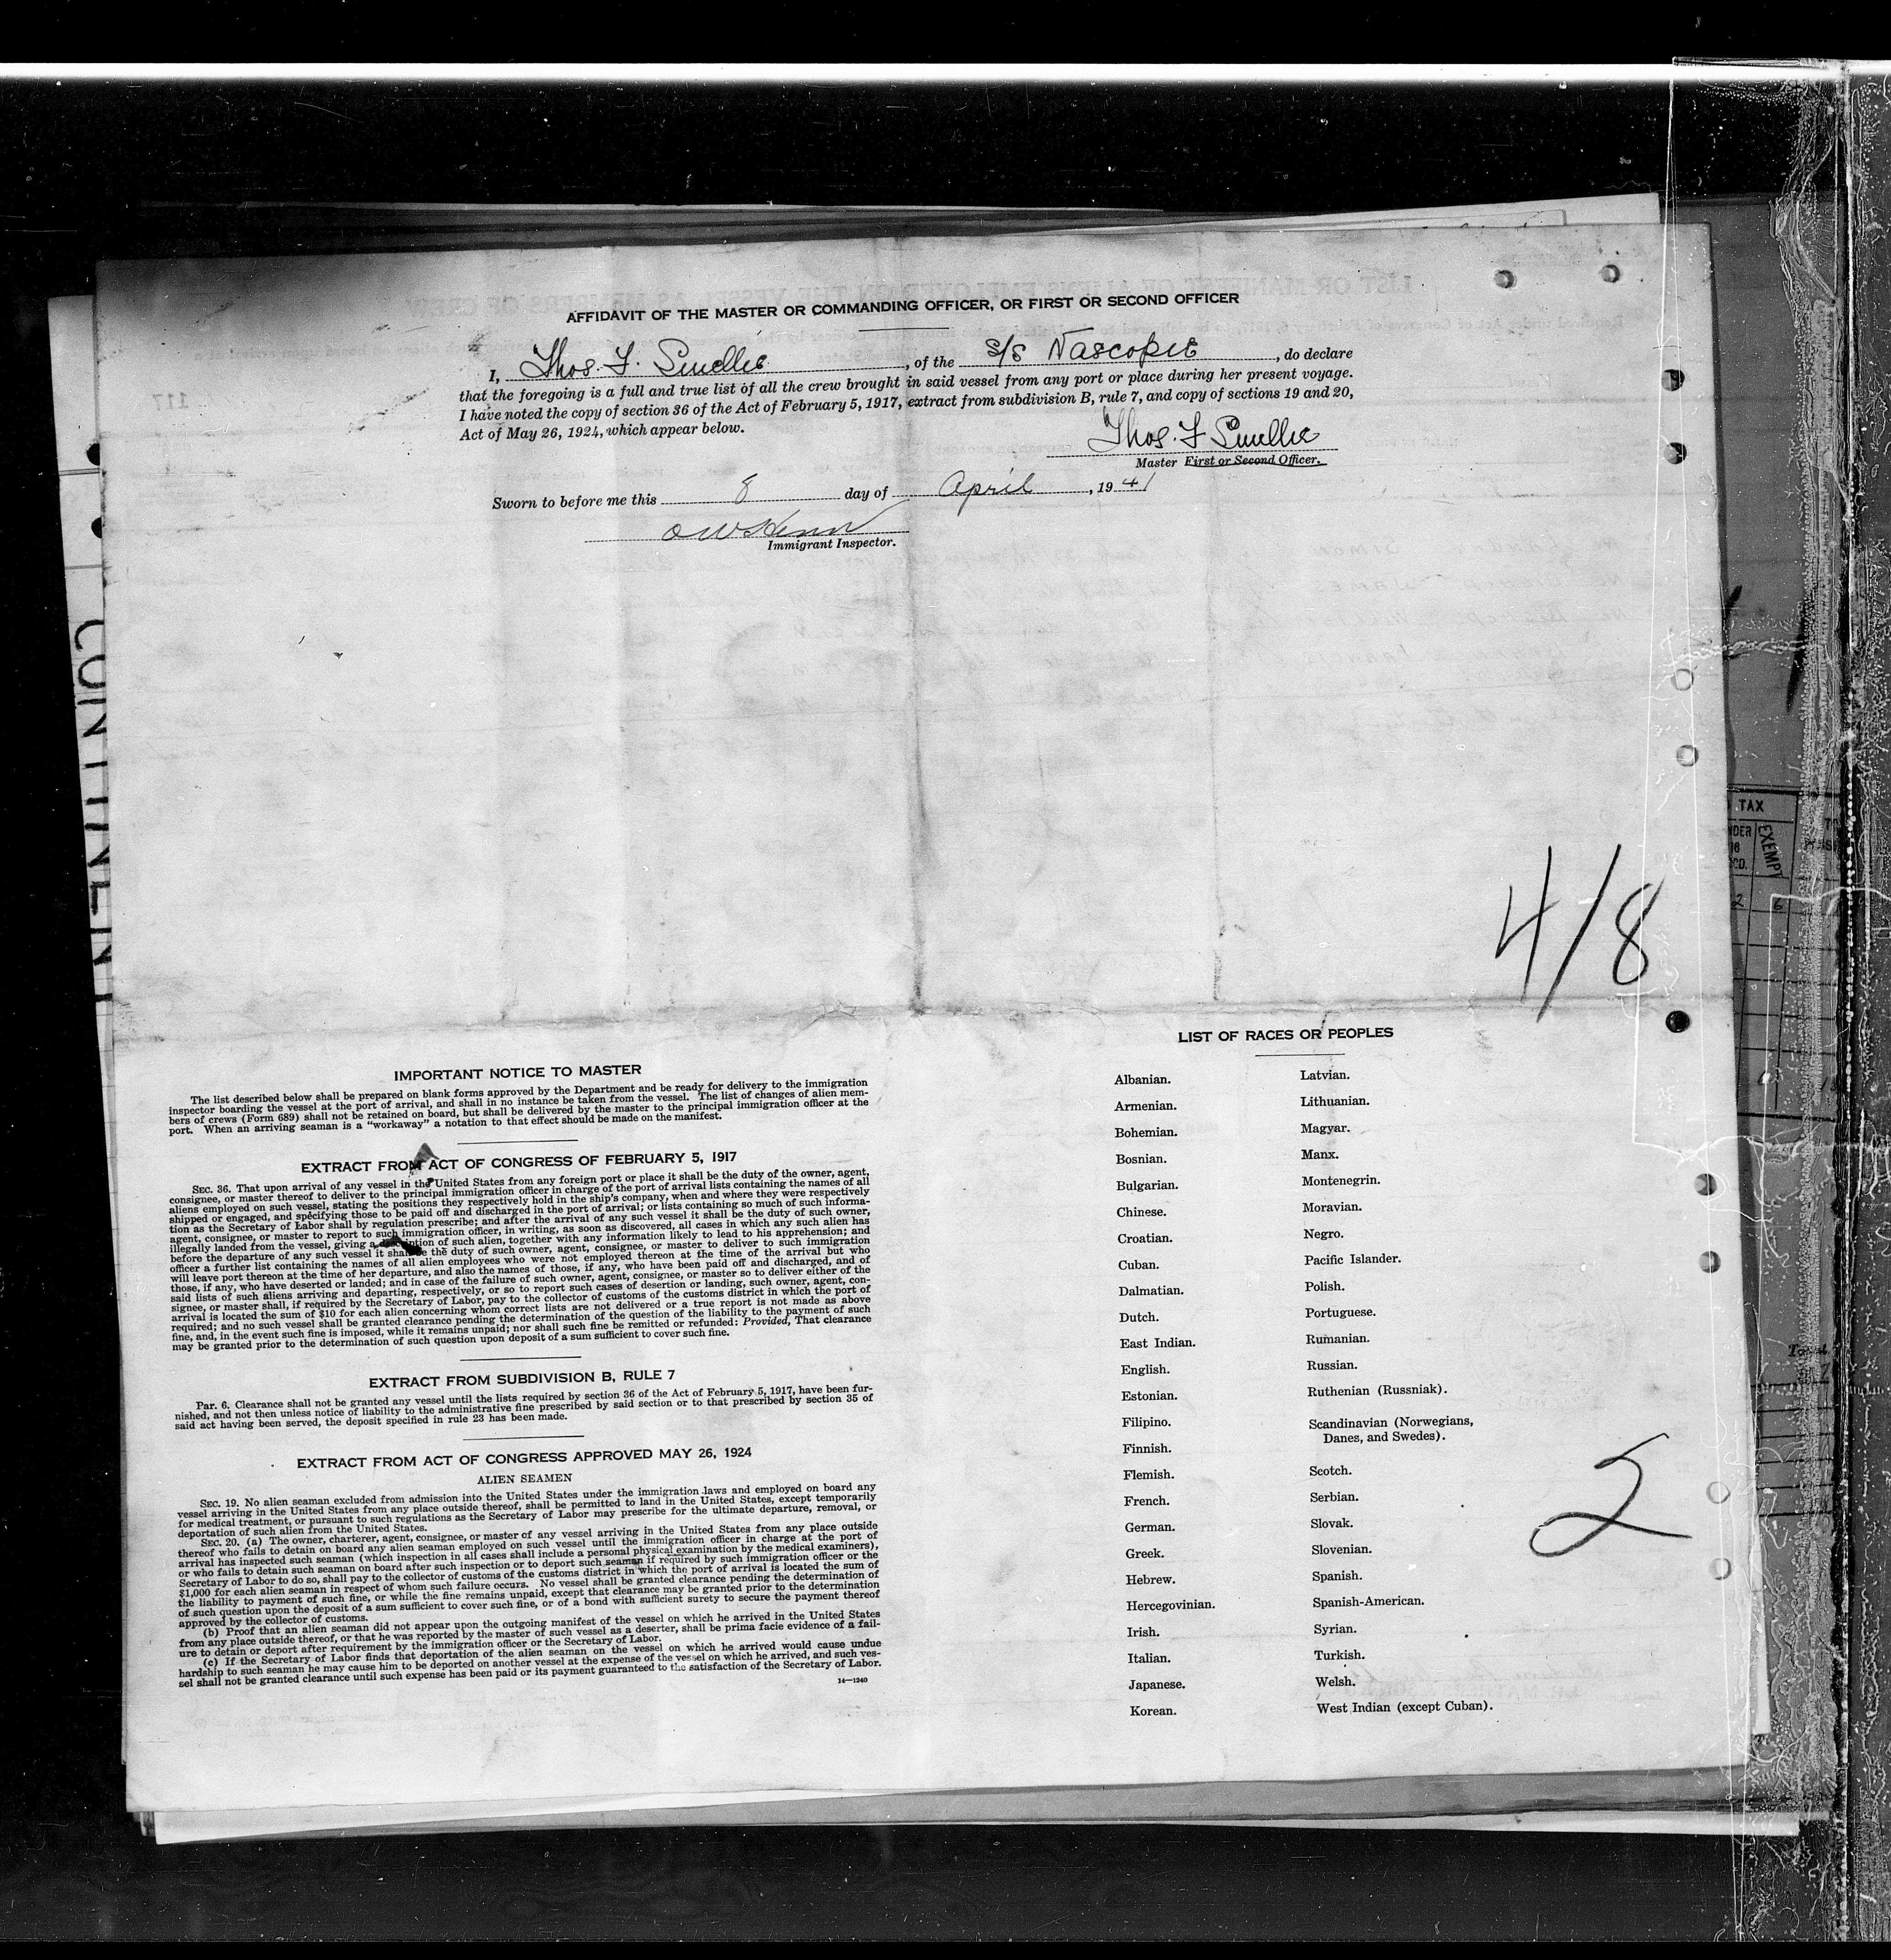 AFFIDAVIT OF THE MASTER OR COMMANDING OFFICER, OR FIRST OR SECOND OFFICER
I, Thos. F. Smellie, of the S/S Nascopie, do declare
that the foregoing is a full and true list of all the crew brought in said vessel from any port or place during her present voyage.
I have noted the copy of section 36 of the Act of February 5, 1917, extract from subdivision B, rule 7, and copy of sections 19 and 20,
Act of May 26, 1924, which appear below.
Thos. F Smellie
Master First or Second Officer.
Sworn to before me this 8 day of April, 1941
Immigrant Inspector.
4/8
IMPORTANT NOTICE TO MASTER
The list described below shall be prepared on blank forms approved by the Department and be ready for delivery to the immigration
inspector boarding the vessel at the port of arrival, and shall in no instance be taken from the vessel. The list of changes of alien mem-
bers of crews (Form 689) shall not be retained on board, but shall be delivered by the master to the principal immigration officer at the
port. When an arriving seaman is a "workaway" a notation to that effect should be made on the manifest.
EXTRACT FROM ACT OF CONGRESS OF FEBRUARY 5, 1917
SEC. 36. That upon arrival of any vessel in the United States from any foreign port or place it shall be the duty of the owner, agent,
consignee, or master thereof to deliver to the principal immigration officer in charge of the port of arrival lists containing the names of all
aliens employed on such vessel, stating the positions they respectively hold in the ship's company, when and where they were respectively
shipped or engaged, and specifying those to be paid off and discharged in the port of arrival; or lists containing so much of such informa-
tion as the Secretary of Labor shall by regulation prescribe; and after the arrival of any such vessel it shall be the duty of such owner,
agent, consignee, or master to report to such immigration officer, in writing, as soon as discovered, all cases in which any such alien has
illegally landed from the vessel, giving a description of such alien, together with any information likely to lead to his apprehension; and
before the departure of any such vessel it shall be the duty of such owner, agent, consignee, or master to deliver to such immigration
officer a further list containing the names of all alien employees who were not employed thereon at the time of the arrival but who
will leave port thereon at the time of her departure, and also the names of those, if any, who have been paid off and discharged, and of
those, if any, who have deserted or landed; and in case of the failure of such owner, agent, consignee, or master so to deliver either of the
said lists of such aliens arriving and departing, respectively, or so to report such cases of desertion or landing, such owner, agent, con-
signee, or master shall, if required by the Secretary of Labor, pay to the collector of customs of the customs district in which the port of
arrival is located the sum of $10 for each alien concerning whom correct lists are not delivered or a true report is not made as above
required; and no such vessel shall be granted clearance pending the determination of the question of the liability to the payment of such
fine, and, in the event such fine is imposed, while it remains unpaid; nor shall such fine be remitted or refunded: Provided, That clearance
may be granted prior to the determination of such question upon deposit of a sum sufficient to cover such fine.
EXTRACT FROM SUBDIVISION B, RULE 7
Par. 6. Clearance shall not be granted any vessel until the lists required by section 36 of the Act of February 5, 1917, have been fur-
nished, and not then unless notice of liability to the administrative fine prescribed by said section or to that prescribed by section 35 of
said act having been served, the deposit specified in rule 23 has been made.
EXTRACT FROM ACT OF CONGRESS APPROVED MAY 26, 1924
ALIEN SEAMEN
SEC. 19. No alien seaman excluded from admission into the United States under the immigration laws and employed on board any
vessel arriving in the United States from any place outside thereof, shall be permitted to land in the United States, except temporarily
for medical treatment, or pursuant to such regulations as the Secretary of Labor may prescribe for the ultimate departure, removal, or
deportation of such alien from the United States.
SEC. 20. (a) The owner, charterer, agent, consignee, or master of any vessel arriving in the United States from any place outside
thereof who fails to detain on board any alien seaman employed on such vessel until the immigration officer in charge at the port of
arrival has inspected such seaman (which inspection in all cases shall include a personal physical examination by the medical examiners),
or who fails to detain such seaman on board after such inspection or to deport such seaman if required by such immigration officer or the
Secretary of Labor to do so, shall pay to the collector of customs of the customs district in which the port of arrival is located the sum of
$1,000 for each alien seaman in respect of whom such failure occurs. No vessel shall be granted clearance pending the determination of
the liability to payment of such fine, or while the fine remains unpaid, except that clearance may be granted prior to the determination
of such question upon the deposit of a sum sufficient to cover such fine, or of a bond with sufficient surety to secure the payment thereof
approved by the collector of customs.
(b) Proof that an alien seaman did not appear upon the outgoing manifest of the vessel on which he arrived in the United States
from any place outside thereof, or that he was reported by the master of such vessel as a deserter, shall be prima facie evidence of a fail-
ure to detain or deport after requirement by the immigration officer or the Secretary of Labor.
(c) If the Secretary of Labor finds that deportation of the alien seaman on the vessel on which he arrived would cause undue
hardship to such seaman he may cause him to be deported on another vessel at the expense of the vessel on which he arrived, and such ves-
sel shall not be granted clearance until such expense has been paid or its payment guaranteed to the satisfaction of the Secretary of Labor.
14—1240
LIST OF RACES OR PEOPLES
Albanian.
Armenian.
Bohemian.
Bosnian.
Bulgarian.
Chinese.
Croatian.
Cuban.
Dalmatian.
Dutch.
East Indian.
English.
Estonian.
Filipino.
Finnish.
Flemish.
French.
German.
Greek.
Hebrew.
Hercegovinian.
Irish.
Italian.
Japanese.
Korean.
Latvian.
Lithuanian.
Magyar.
Manx.
Montenegrin.
Moravian.
Negro.
Pacific Islander.
Polish.
Portuguese.
Rumanian.
Russian.
Ruthenian (Russniak).
Scandinavian (Norwegians,
Danes, and Swedes).
Scotch.
Serbian.
Slovak.
Slovenian.
Spanish.
Spanish-American.
Syrian.
Turkish.
Welsh.
West Indian (except Cuban).
2
TAX
EXEMPT